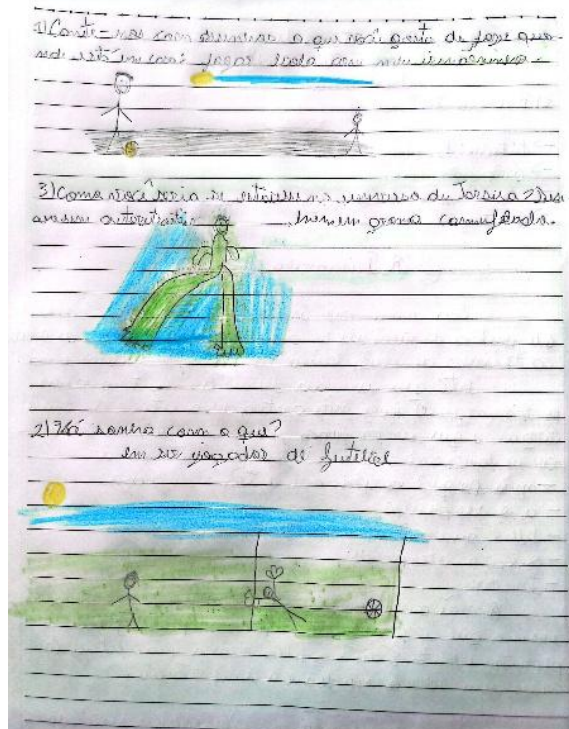 1) Conte-nos com desenhos o que você gosta de faze quan-
do está em casa: jogar bola com meu
3) Como você seria se estivesse no universo de Tarsila? Des
autorretrato. homem grama camuflada.
2) Vcê sonha com o que?
em ser jogador de futebol